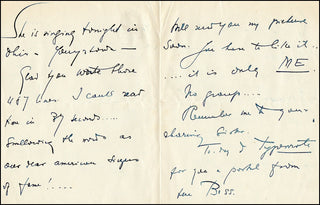 She is singing tonight in
this - Youngstown -
Glad you wrote those
467 lines I could read
them in 39 seconds....
Swallowing the words as
our dear american singers
of fame!....
Will send you my picture
soon. You have to like it..
.... it is only ME.
No group....
Remember me to your
charming Sister.
To day I Typewrote
for you a postal from
the Boss.